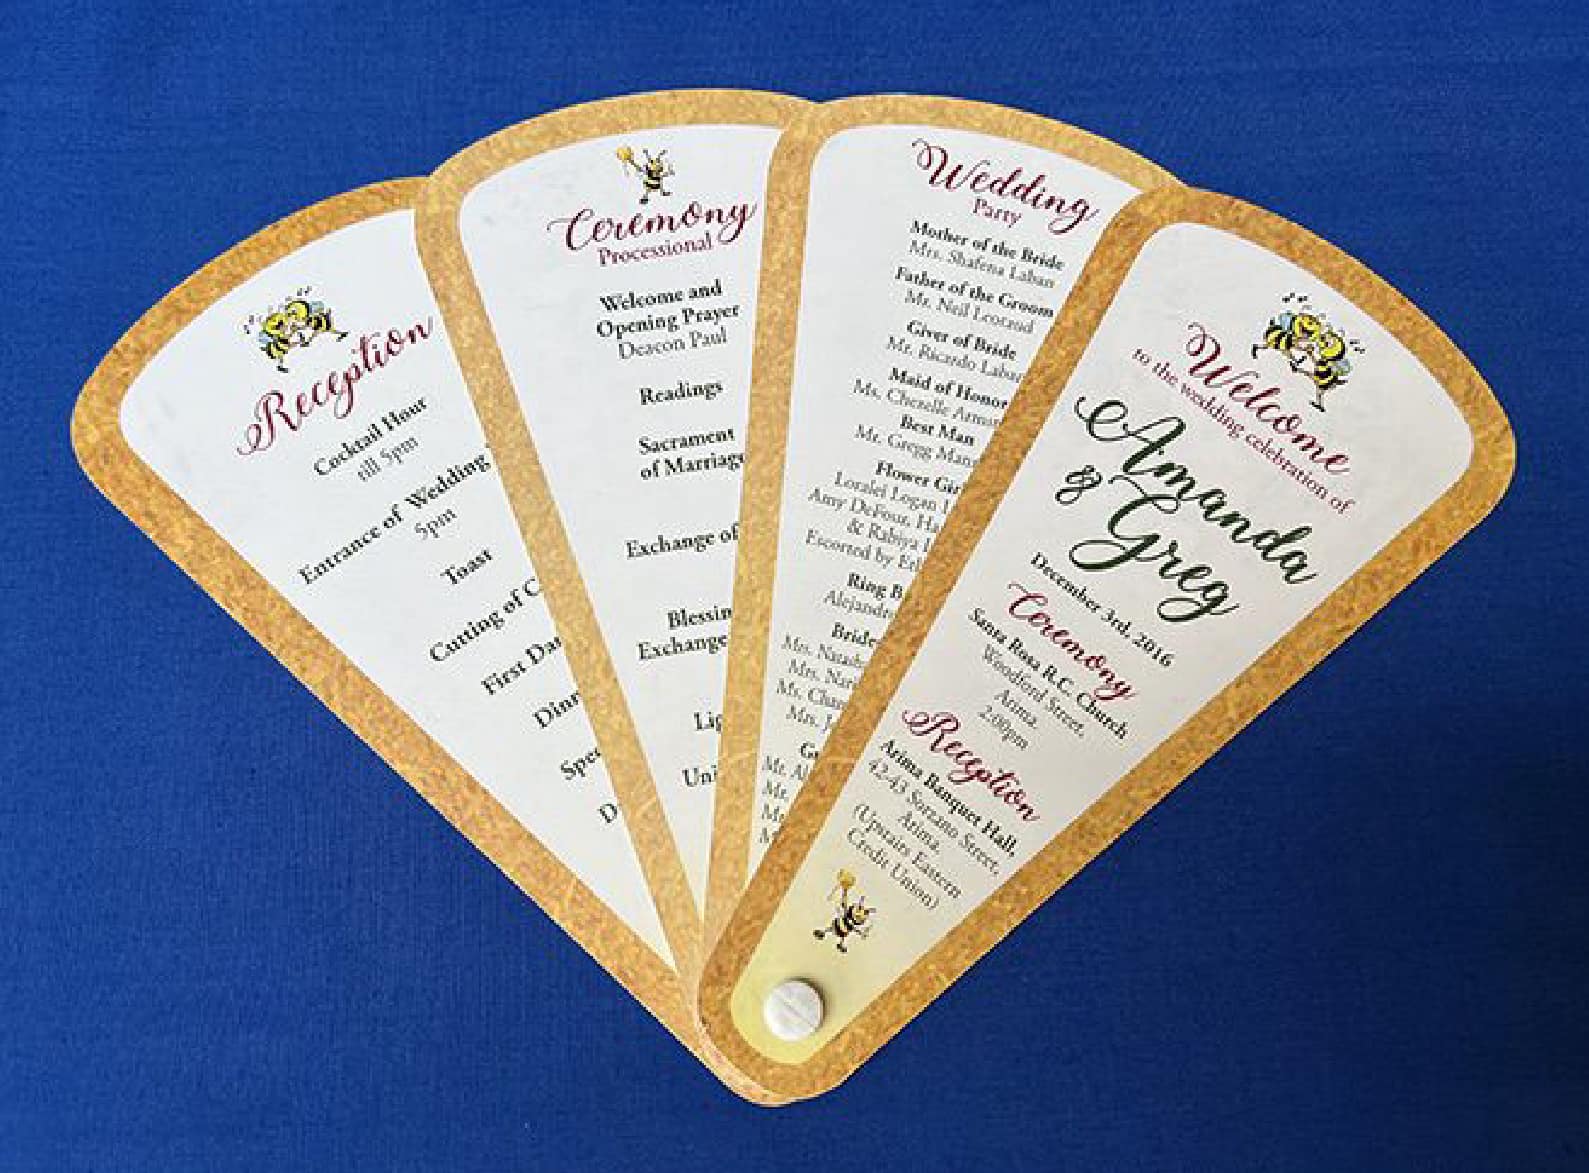 Reception
Cocktail Hour
till 5pm
Entrance of Wedding
5pm
Toast
Cutting of
First
Ceremony
Processional
Welcome and
Opening Prayer
Deacon Paul
Readings
Sacrament
of Marriage
Exchange of
Exchange
Wedding
Party
Mother of the Bride
Mrs. Shafena Laban
Father of the Groom
Mr. Neil
Giver of Bride
Mr. Ricardo
Maid of Honor
Ms. Chezelle
Best Man
Mr. Gregg
Flower
Loralei Logan
Amy DeFour,
& Rabiya
Escorted by
Ring
Mrs.
Mrs.
Ms.
Mrs.
Mr.
Mr.
Welcome
to the wedding celebration of
Amanda
& Greg
December 3rd, 2016
Ceremony
Santa Rosa R.C. Church
Woodford Street,
Arima.
2:00pm
Reception
Arima Banquet Hall,
42-43 Sorzano Street,
Arima.
(Upstairs Eastern
Credit Union)